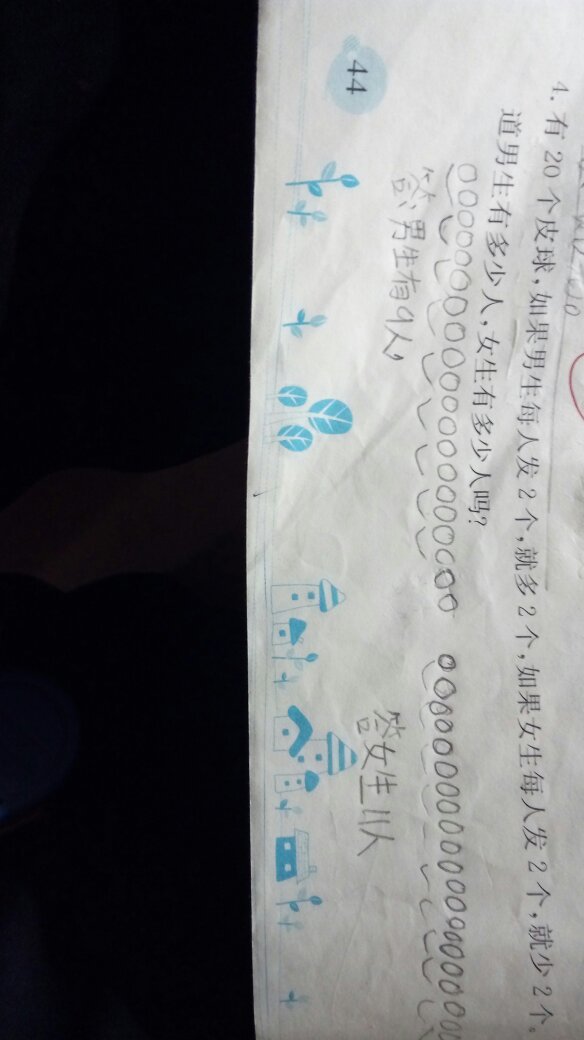 4. 有 20 个皮球，如果男生每人发 2 个，就多 2 个，如果女生每人发 2 个，就少 2 个。
道男生有多少人，女生有多少人吗？
答：男生有9人，
答女生11人
44